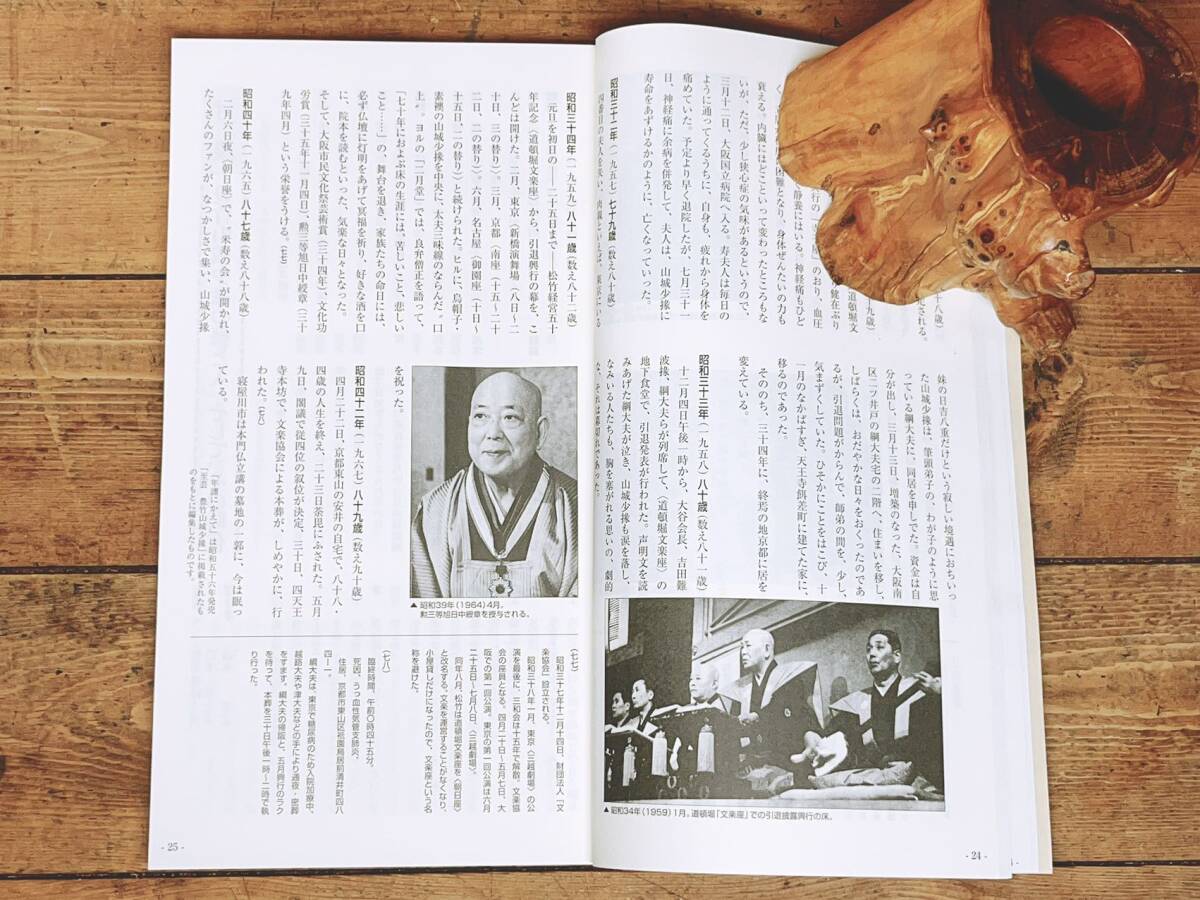 衰える。内臓にはどこといって変わったところもな
いが、ただ、少し狭心症の気味があるというので、
三月十二日、大阪国立病院へ入る。寿夫人は毎日の
ように通ってくるうちに、自身も、疲れから身体を
痛めていた。予定より早く退院したが、七月三十一
日、神経痛に余病を併発して、夫人は、山城少掾に
寿命をあずけるかのように、亡くなっていった。
昭和三十二年(一九五七)七十九歳
妹の日吉八重だけという寂しい境遇におちいっ
た山城少掾は、筆頭弟子の、わが子のように思
っている綱大夫に、同居を申しでた。資金は自
分が出し、三月十三日、増築のなった、大阪南
区二ツ井戸の綱大夫宅の二階へ、住まいを移し、
しばらくは、おだやかな日々をおくったのであ
るが、引退問題がからんで、師弟の間を、少し、
気まずくしていた。ひそかにことをはこび、十
一月のなかばすぎ、天王寺餌差町に建てた家に、
移るのであった。
そののち、三十四年に、終焉の地京都に居を
変えている。
昭和三十三年(一九五八)八十歳(数え八十一歳)
十二月四日午後一時から、大谷会長、吉田難
波掾、綱大夫らが列席して、〈道頓堀文楽座〉の
地下食堂で、引退発表が行われた。声明文を読
みあげた綱大夫が泣き、山城少掾も涙を落し、
なみいる人たちも、胸を塞がれる思いの、劇的
な、それは幕切れであった。
▲ 昭和34年(1959)1月。道頓堀「文楽座」での引退披露興行の床。
- 24 -
昭和三十四年(一九五九)八十一歳(数え八十二歳)
元旦を初日の――二十五日まで――松竹経営五十
年記念〈道頓堀文楽座〉から、引退興行の幕を、こ
んどは開けた。二月、東京〈新橋演舞場〉(八日〜二
十日、三の替り)。三月、京都〈南座〉(十五〜二十
二日、二の替り)。六月、名古屋〈御園座〉(十日〜
十五日、二の替り)と続けられた。ヒルに、烏帽子・
素襖の山城少掾を中央に、太夫三味線のならんだ〝口
上〟。ヨルの「二月堂」では、良弁僧正を語って、
「七十年におよぶ床の生涯には、苦しいこと、悲しい
こと……」の、舞台を退き、家族たちの命日には、
必ず仏壇に灯明をあげて冥福を祈り、好きな酒を口
に、院本を読むといった、気楽な日々となった。
そして、大阪市民文化祭芸術賞(三十四年)、文化功
労賞(三十五年十一月四日)、勲三等旭日中綬章(三十
九年四月)という栄誉をうける。(七七)
昭和四十年(一九六五)八十七歳(数え八十八歳)
二月六日夜、〈朝日座〉で、〝米寿の会〟が開かれ、
たくさんのファンが、なつかしさで集い、山城少掾
を祝った。
▲ 昭和39年(1964)4月。
勲三等旭日中綬章を授与される。
昭和四十二年(一九六七)八十九歳(数え九十歳)
四月二十二日、京都東山の安井の自宅で、八十八・
四歳の人生を終え、二十三日荼毘にふされた。五月
九日、閣議で従四位の叙位が決定、三十日、四天王
寺本坊で、文楽協会による本葬が、しめやかに、行
われた。(七八)
寝屋川市は本門仏立講の墓地の一郭に、今は眠っ
ている。
「年譜にかえて」は昭和五十六年発売
「至芸 豊竹山城少掾」に掲載されたも
のをもとに編集したものです。
(七七)
昭和三十七年十二月十四日、財団法人「文
楽協会」設立される。
昭和三十八年一月、東京〈三越劇場〉の公
演を最後に、三和会は十五年で解散。文楽協
会の座員となる。四月二十日〜五月七日、大
阪での第一回公演。東京の第一回公演は六月
二十五日〜七月八日、〈三越劇場〉。
同年八月、松竹は道頓堀文楽座を〈朝日座〉
と改名する。文楽を運営することがなくなり、
小屋貸しだけになったので、文楽座という名
称を避けた。
(七八)
臨終時間、午前〇時四十五分。
死因、うっ血性気管支肺炎、
住居、京都市東山区祇園鳥居前清井町四八
四ー一。
綱大夫は、東京で糖尿病のため入院加療中、
越路大夫や津大夫などの手により通夜・密葬
をすます。綱大夫の帰阪と、五月興行のラク
を待って、本葬を三十日午後一時〜二時で執
り行った。
- 25 -